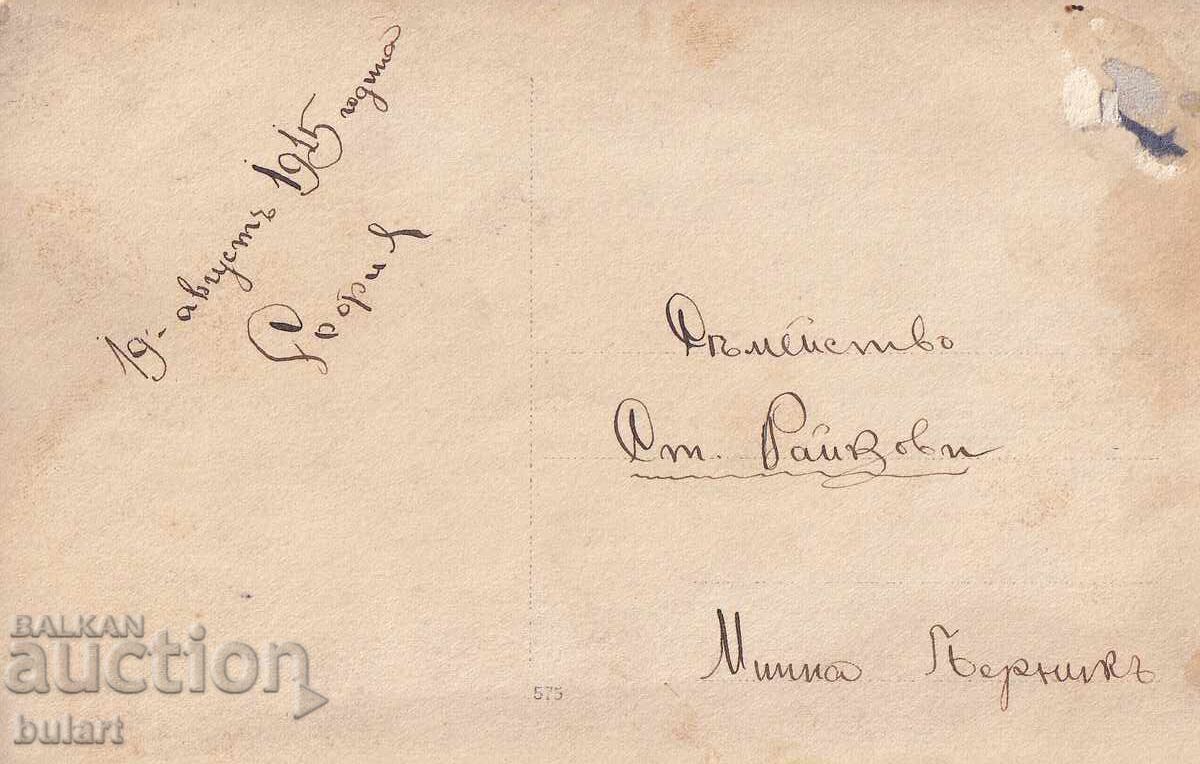 19. августъ 1915 година
София
Съмейство
Ст. Райкови
Мина Перникъ
575
BALKAN
auction
bulart